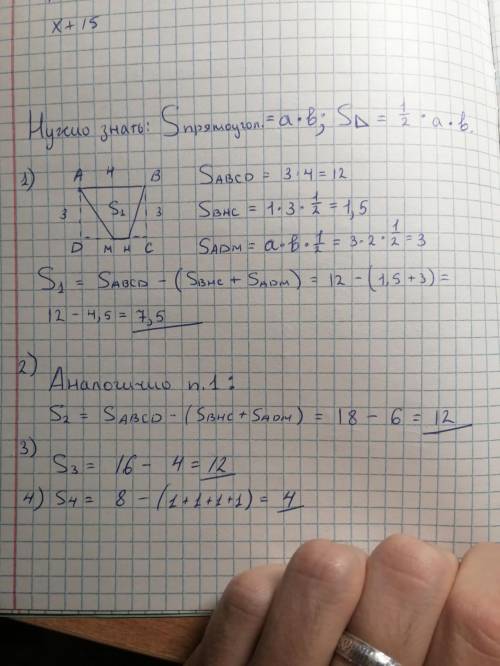 x+15
Нужно знать: Sпрямоугол. = a·b; S⊿ = 1/2 · a · b.
1)
A 4 B
3 S1 3
D M H C
SABCD = 3·4 = 12
SBHC = 1·3·1/2 = 1,5
SADM = a·b·1/2 = 3·2·1/2 = 3
S1 = SABCD - (SBHC + SADM) = 12 - (1,5 + 3) =
12 - 4,5 = 7,5
2) Аналогично п.1:
S2 = SABCD - (SBHC + SADM) = 18 - 6 = 12
3) S3 = 16 - 4 = 12
4) S4 = 8 - (1+1+1+1) = 4